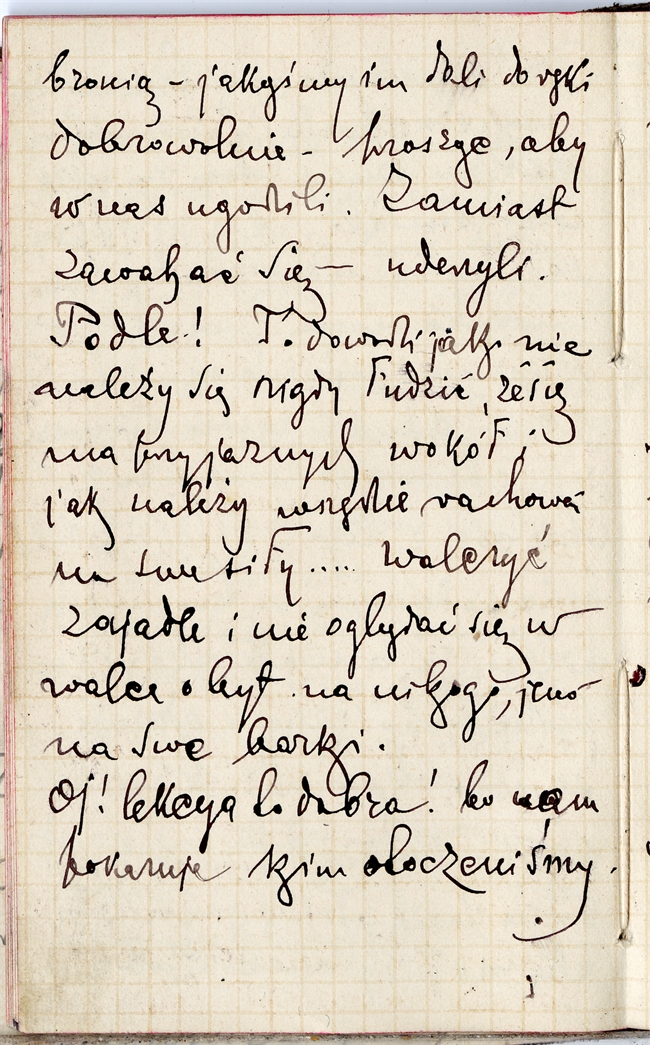 bronią – jakąśmy im dali do ręki
dobrowolnie – prosząc, aby
w nas ugodzili. Zamiast
zawahać się – uderzyli.
Podle! To dowodzi jak nie
należy się nigdy łudzić, że się
ma przyjaznych wokół i
jak należy wszędzie rachować
na swe siły.... walczyć
zajadle i nie oglądać się w
walce o byt na nikogo, jeno
na swe barki.
Oj! lekcya to dobra! bo nam
pokazuje kim otoczeniśmy.